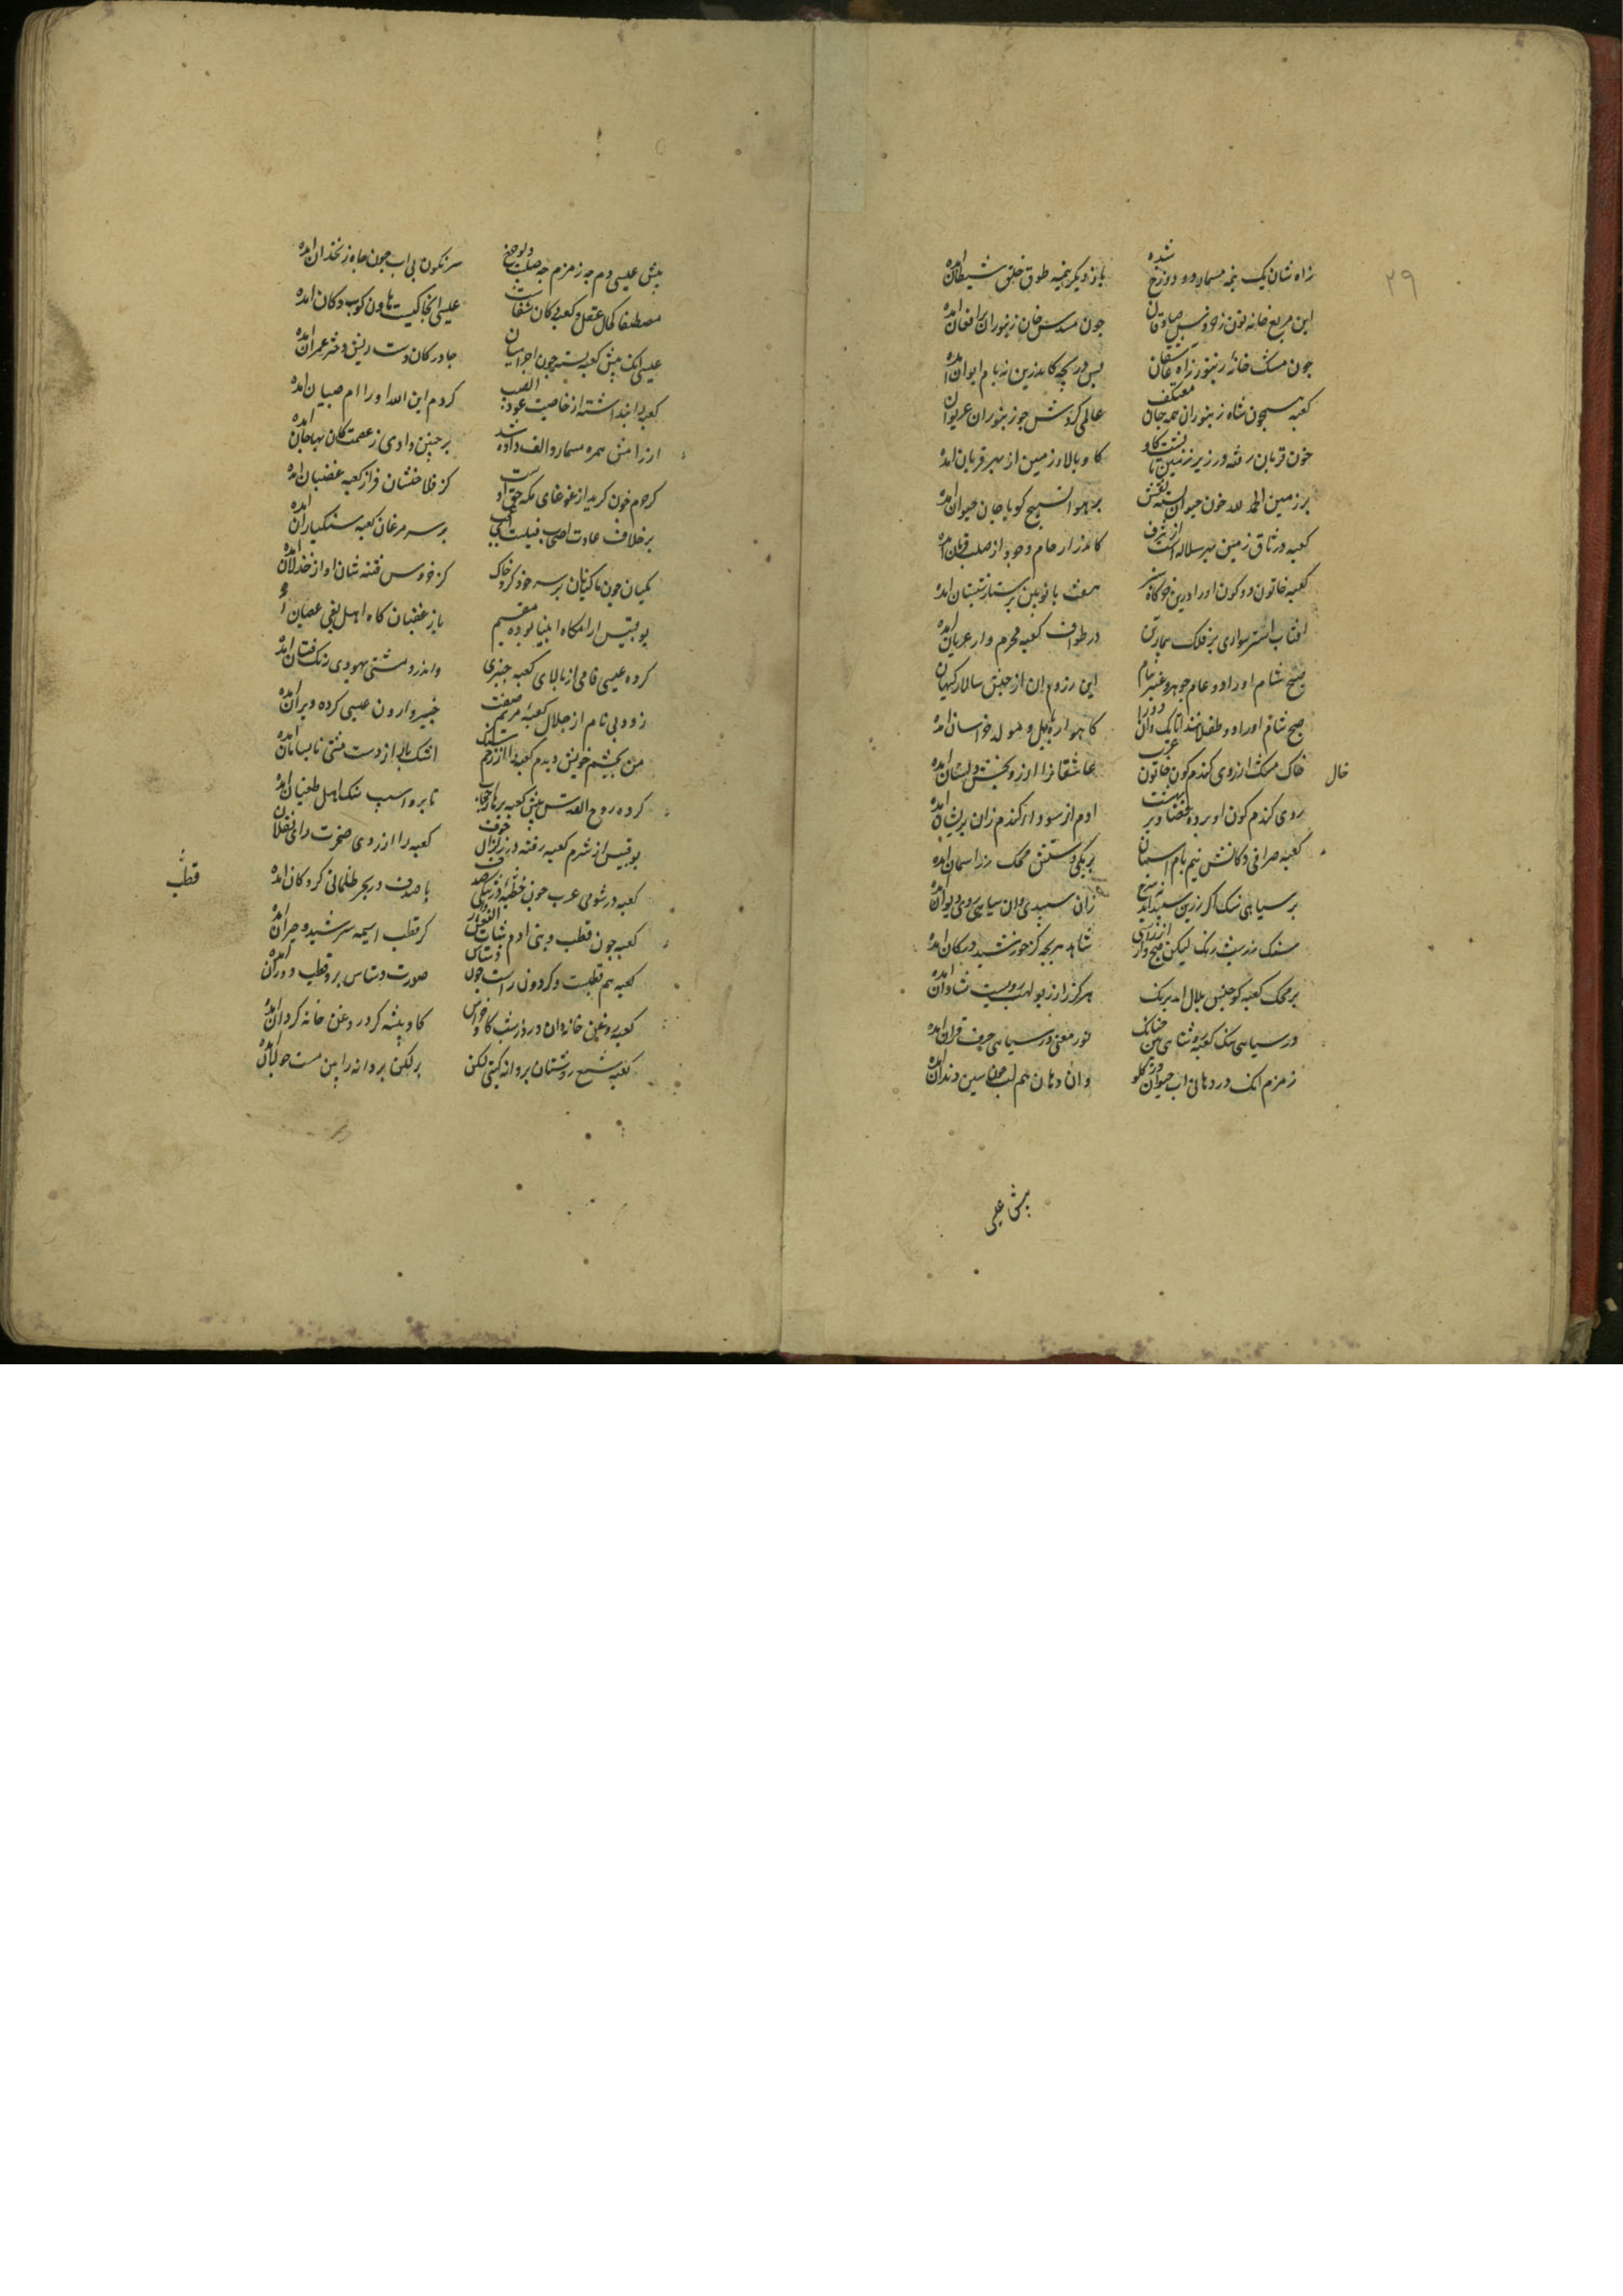 ۲۹
زاه شان یک نیمه مسمار در دوزخ شده باز دیکر نیمه طوق حلق شیطان امده
این مربع خانه نون زخروش صادقان جون مسدس خان زنبوران برافغان امده
جون مشبک خانه زنبور زاه عاشقان بس دریچه کاندرین نه بام ایوان امده
کعبه همجون شاه زنبوران همه جان معتکف عالمی کردش جو زنبوران غریوان
خون قربان رفته در زیر زمین تا بشت کاو کاو بالاء زمین از بهر قربان امده
بر زمین الحمد لله خون حیوان بسته نقش بر هوا تسبیح کویا جان حیوان امده
کعبه در ناف زمین بهتر سلاله از شرف کاندر ارحام وجود از صلب فرمان امده
کعبه خاتون دو کون او را درین خرکاه سبز هفت بانو بین برستار شبستان امده
افتاب اشتر سواری بر فلک بیمار تن در طواف کعبه محرم وار عریان امده
صبح و شام او را دو خادم جوهر و عنبر بنام این ز روم ان از حبش سالار کیهان
صبح و شام او را دو طفلانند اتابک دو را کاهواره بابل و مولد خراسان امده
خاک مکه ارزوی کندم کون خاتون عرب عاشقانرا ارزو بخش و دلستان امده
خال
روی کندم کون او برده بهشت ادم از سودای کندم زان بریشان امده
کعبه صرافی دکانش نیم بام اسمان بر یکی دستش محک زر اسمان امده
بر سیاهی سنک اکر زرین سبید اید زان سبیدی وان سیاهی روی دیوان امده
سنک زر شب رنک لیکن صبح وار از راستی شاهد هر بجه کز خورشید در کان امده
بر محک کعبه کو جنس بلال امد برنک هر کرا زر بو لهب رویست شادان امده
در سیاهی سنک کعبه روشنایی بین جنانک نور معنی در سیاهی حرف قران امده
زمزم انک در دهان اب حیوان در کلو وان دهان هم لب جو میم و سین دندان امده
بیش عیسی
بیش عیسی دم جه زمزم جه صلیب دلو جرخ سرنکون بی اب جون جاه زنخدان امده
مصطفا کحال عقل و کعبه دکان شفاست عیسی انجا کیست هاون کوب دکان امده
عیسی انک بیش کعبه بسته جون احرامیان جادر کان دست ریس دختر عمران امده
کعبه را بنداشته از خاصیت کردم این الله او را ام صبیان امده
کرجم خون کریم از غوغای مکه حق اوست کز فلاخنشان فراز کعبه غضبان امده
بر خلاف عادت اصحاب فیلست ای عجب بر سر مرغان کعبه سنکباران امده
مکیان جون ماکیان بر سر خود کرده خاک کز خروس فتنه شان اواز خذلان امده
بوقبیس ارامکاه انبیا بوده مقیم باز غضبان کاه اهل بغی عصیان امده
کرده عیسی نامی از بالای کعبه خیبری واندرو مشتی یهودی رنک فتان امده
زود بی نام از جلال کعبه مریم صفت خیبر وارون عیسی کرده ویران امده
من بجشم خویش دیدم کعبه را از زخم سنک اشک بار از دست مشتی نابسامان امده
کرده روح القدس بیش کعبه برها را حجاب تا برو اسیب سنک اهل طغیان امده
بوقبیس از شرم کعبه رفته در زلزال خوف کعبه را از روی ضجرت رای نقلان
کعبه در شومی عرب جون قطره در تنکی صدف یا صدف در بحر ظلمانی کروکان امده
کعبه جون قطب و بنی ادم بنات النعش وار کز قطب اسیمه سر شید و حیران امده
قطب
کعبه هم قطبست و کردون راست جون دستاس صورت دستاس بر قطب دوران امده
کعبه روغن خانه دان و روز شب کاو خراس کاو بیشه کرد روغن خانه کردان امده
کعبه شمع و روشنان بروانه کیتی لکن بر لکن بروانه را بین مست جولان امده